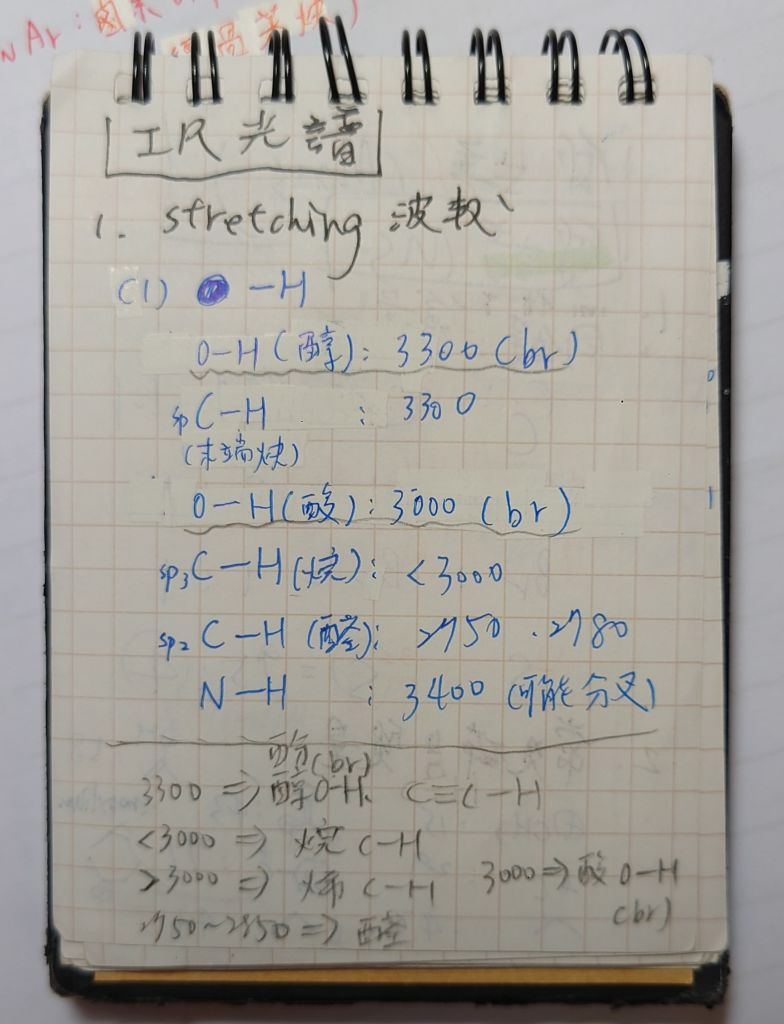 NAr:鹵素
IR 光譜
1. stretching 波數
(1) -H
O-H(醇): 3300(br)
sp C-H : 3300
(末端炔)
O-H(酸): 3000(br)
sp3 C-H(烷): <3000
sp2 C-H(醛): 2750.2780
N-H : 3400(可能分叉)
(br)
3300 ⇒ 醇O-H. C≡C-H
<3000 ⇒ 烷 C-H
>3000 ⇒ 烯 C-H 3000⇒酸 O-H
(br)
2750~2850 ⇒ 醛